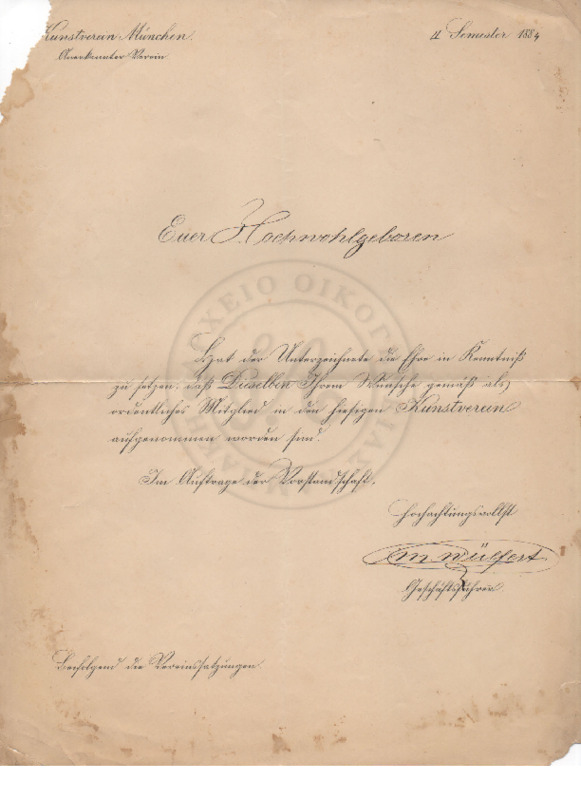 Kunstverein München.
Anerkannter Verein
II Semester 1884
Euer Hochwohlgeboren
Hat der Unterzeichnete die Ehre in Kenntniß
zu setzen, daß Dieselben Ihrem Wunsche gemäß als
ordentliches Mitglied in den hiesigen Kunstverein
aufgenommen worden sind.
Im Auftrage der Vorstandschaft.
Hochachtungsvollst
M. Wülfert
Geschäftsführer.
Beifolgend die Vereinssatzungen.
ΑΡΧΕΙΟ ΟΙΚΟΓ